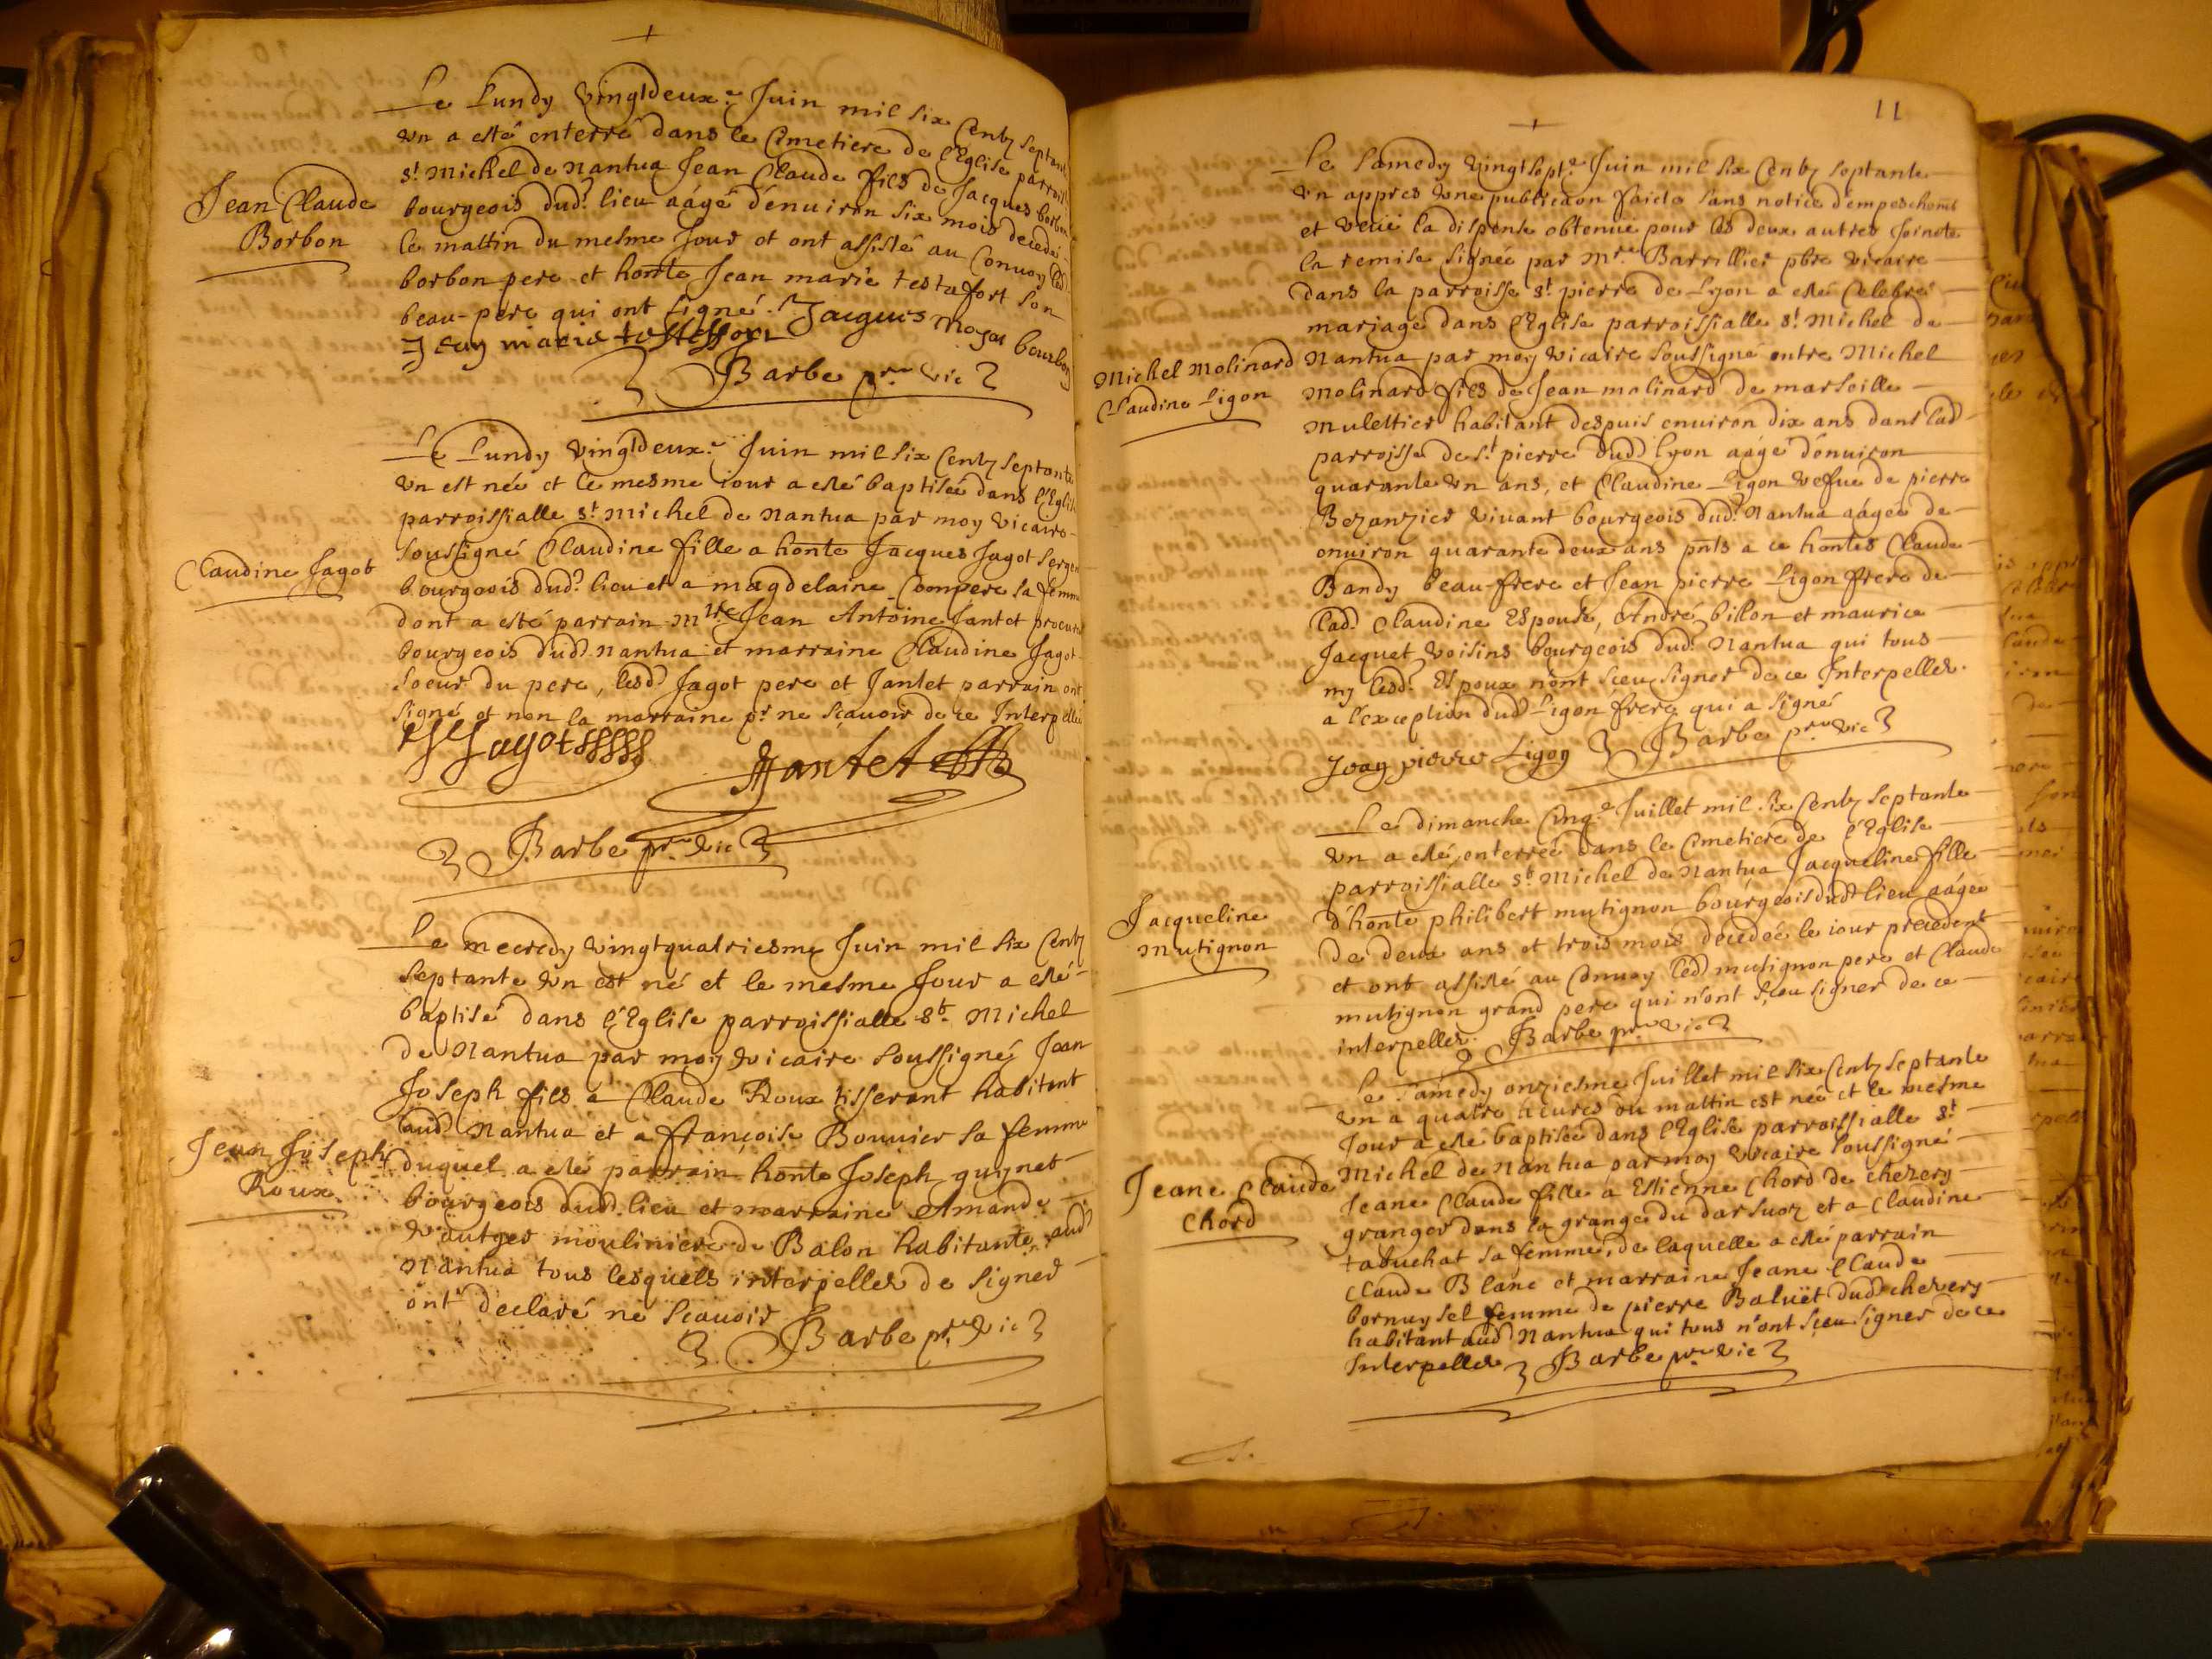 Le Lundy vingtdeux.e Juin mil six Centz septante
vn a esté enterré dans le Cimetiere de l'Eglise parroiss.
st Michel de Nantua Jean Claude fils de Jacques borbon
Jean Claude
Borbon
bourgeois dud.t lieu aágé d'enuiron six mois decedé
le mattin du mesme Jour et ont assisté au Conuoy led.
borbon pere et honte Jean marie testafort son
beau-pere qui ont signé. Jacques moyat bourbon
Jean marie testeffort
Barbe pre vic
Le Lundy vingtdeux.e Juin mil six Centz septante
vn est née et le mesme iour a esté baptisée dans l'Eglise
parroissialle st Michel de Nantua par moy vicaire
Claudine Jagot
soussigné Claudine fille a honte Jacques Jagot sergen
bourgeois dud.t lieu et a magdelaine Compere sa femme
dont a esté parrain Mtre Jean Antoine Jantet procur
bourgeois dud. Nantua et marraine Claudine Jagot
soeur du pere, lesd. Jagot pere et Jantet parrain ont
signé et non la marraine pr ne scauoir de ce Interpellée
Jagot
Jantet
Barbe pre vic
Le mecredy vingtquatriesme Juin mil six Centz
septante vn est né et le mesme Jour a esté
baptisé dans l'Eglise parroissialle st. Michel
de Nantua par moy vicaire soussigné Jean
Joseph fils a Claude Roux tisserant habitant
aud. Nantua et a françoise Bouuier sa femme
Jean Joseph
Roux
duquel a esté parrain honte Joseph guynet
bourgeois dud. lieu et marraine Amande
vautger mouliniere de Balon habitante aud.
Nantua tous lesquels interpelles de signer
ont declaré ne scauoir
Barbe pre vic
11
Le samedy vingtsept.e Juin mil six Centz septante
vn appres vne publicaon faicte sans notice d'empeschemt
et veüe la dispense obtenue pour les deux autres Joincte
la remise signée par Mre Barrillier pbre vicaire
dans la parroisse st pierre de Lyon a esté Celebré
mariage dans l'Eglise parroissialle st Michel de
Michel Molinard
Claudine Ligon
Nantua par moy vicaire soussigné entre Michel
Molinard fils de Jean molinard de marseille
mulettier habitant despuis enuiron dix ans dans lad.
parroisse de st pierre dud. Lyon aágé d'enuiron
quarante vn ans, et Claudine Ligon vefue de pierre
Bezanzier viuant bourgeois dud.t Nantua aágée de
enuiron quarante deux ans pnts a ce hontes Claude
Bandy beau-frere et Jean pierre Ligon frere de
lad. Claudine Espouse, André billon et maurice
Jacquet voisins bourgeois dud.t Nantua qui tous
ny lesd.t Espoux n'ont sceu signer de ce Interpelles.
a l'exception dud. Ligon frere qui a signé
Jean pierre Ligon Barbe pre vic
Le dimanche Cinq.e Juillet mil six Centz septante
vn a esté enterrée dans le Cimetiere de l'Eglise
parroissialle st Michel de Nantua Jacqueline fille
Jacqueline
Mutignon
d'honte philibert mutignon bourgeois dud. lieu aágée
de deux ans et trois mois decedée le iour precedent
et ont assisté au Conuoy led. mutignon pere et Claude
mutignon grand pere qui n'ont sceu signer de ce
interpelles. Barbe pre vic
Le samedy onziesme Juillet mil six Centz septante
vn a quatre heures du mattin est née et le mesme
Jour a esté baptisée dans l'Eglise parroissialle st
Jeane Claude
Chord
Michel de Nantua par moy vicaire soussigné
Jeane Claude fille a Estienne Chord de chezery
granger dans la grange du et a Claudine
tabuchat sa femme, de laquelle a esté parrain
Claude Blanc et marraine Jeane Claude
bornuysel femme de pierre Baluët dud. chezery
habitant aud. Nantua qui tous n'ont sceu signer de ce
Interpelles Barbe pre vic